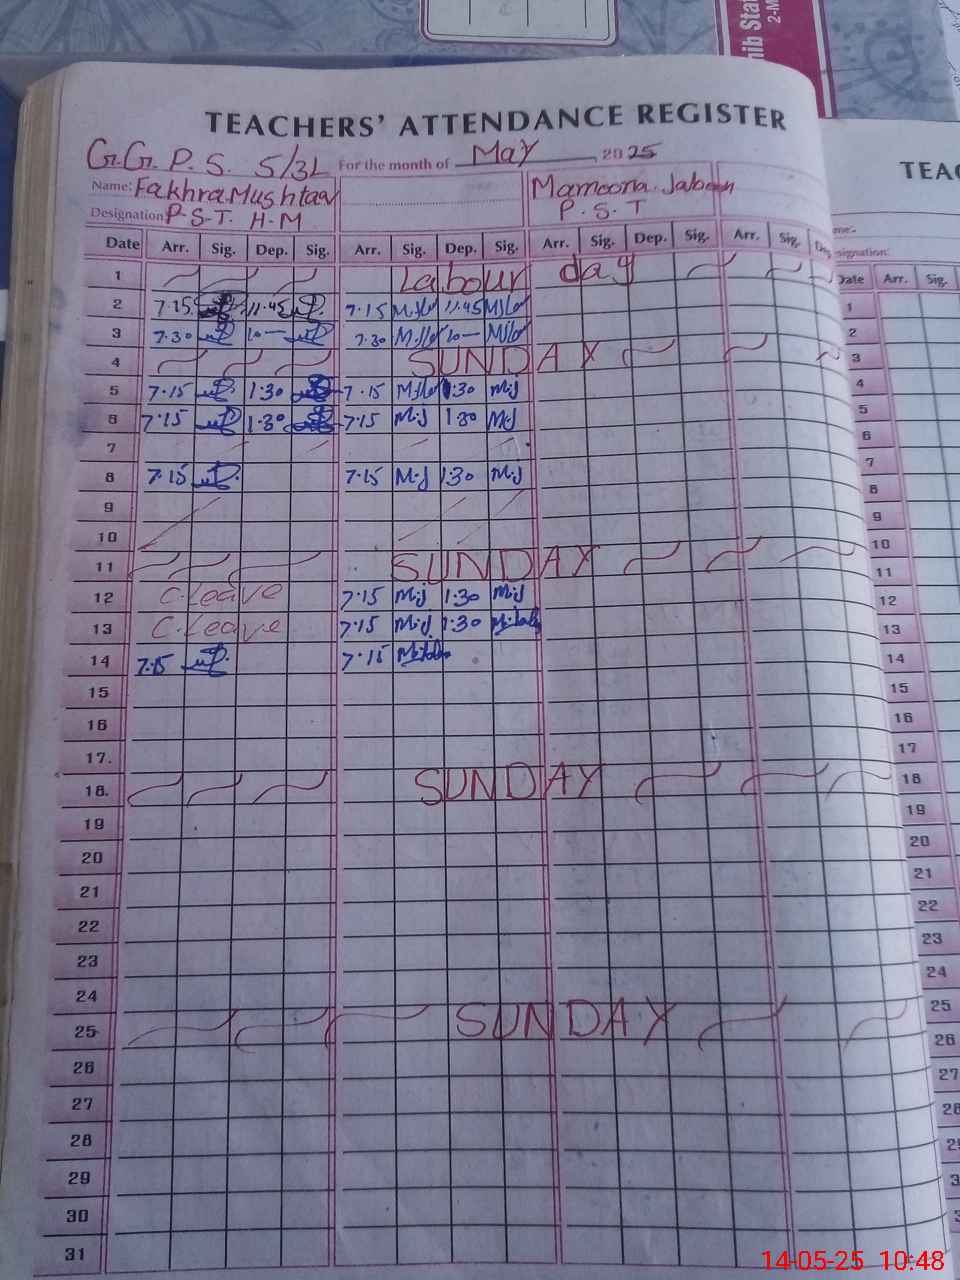 hib Sta
2-M
TEACHERS' ATTENDANCE REGISTER
G.G. P. S. 5/3L For the month of May 2025
Name: Fakhra Mushtaq Mamoona Jabeen
Designation P.S.T. H.M P.S.T
Date Arr. Sig. Dep. Sig. Arr. Sig. Dep. Sig. Arr. Sig. Dep. Sig. Arr. Sig. De
1 Labour day
2 7.15 11.45 7.15 11.45
3 7.30 10 7.30 10
4 SUNDAY
5 7.15 1:30 7.15 1:30 M.J
6 7.15 1:30 7.15 M.J 1:30 M.J
7
8 7.15 7.15 M.J 1:30 M.J
9
10
11 SUNDAY
12 C.Leave 7.15 M.J 1:30 M.J
13 C.Leave 7.15 M.J 1:30
14 7.15 7.15
15
16
17.
18. SUNDAY
19
20
21
22
23
24
25 SUNDAY
26
27
28
29
30
31
TEAC
me:
signation:
Date Arr. Sig.
1
2
3
4
5
6
7
8
9
10
11
12
13
14
15
16
17
18
19
20
21
22
23
24
25
26
27
28
14-05-25 10:48